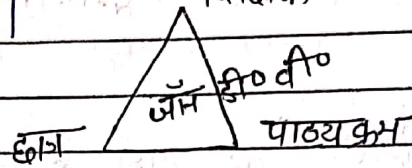 जॉन डी० वी०
छात्र पाठ्यक्रम